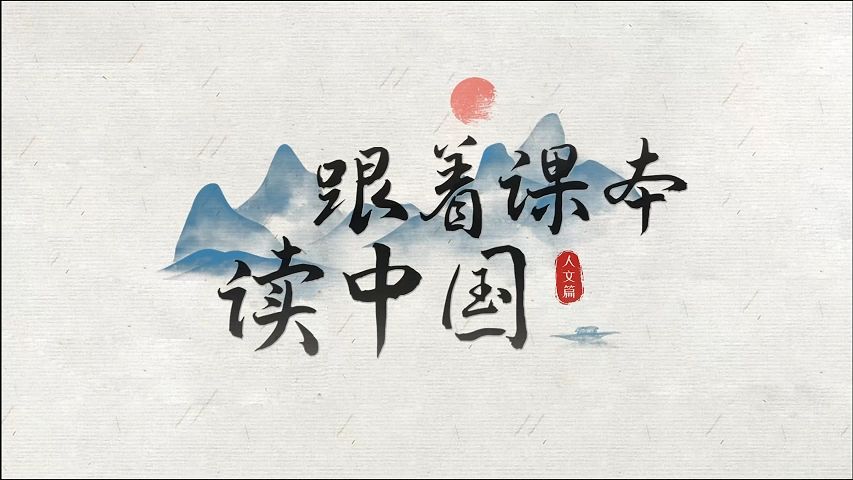 跟着课本
读中国
人文篇